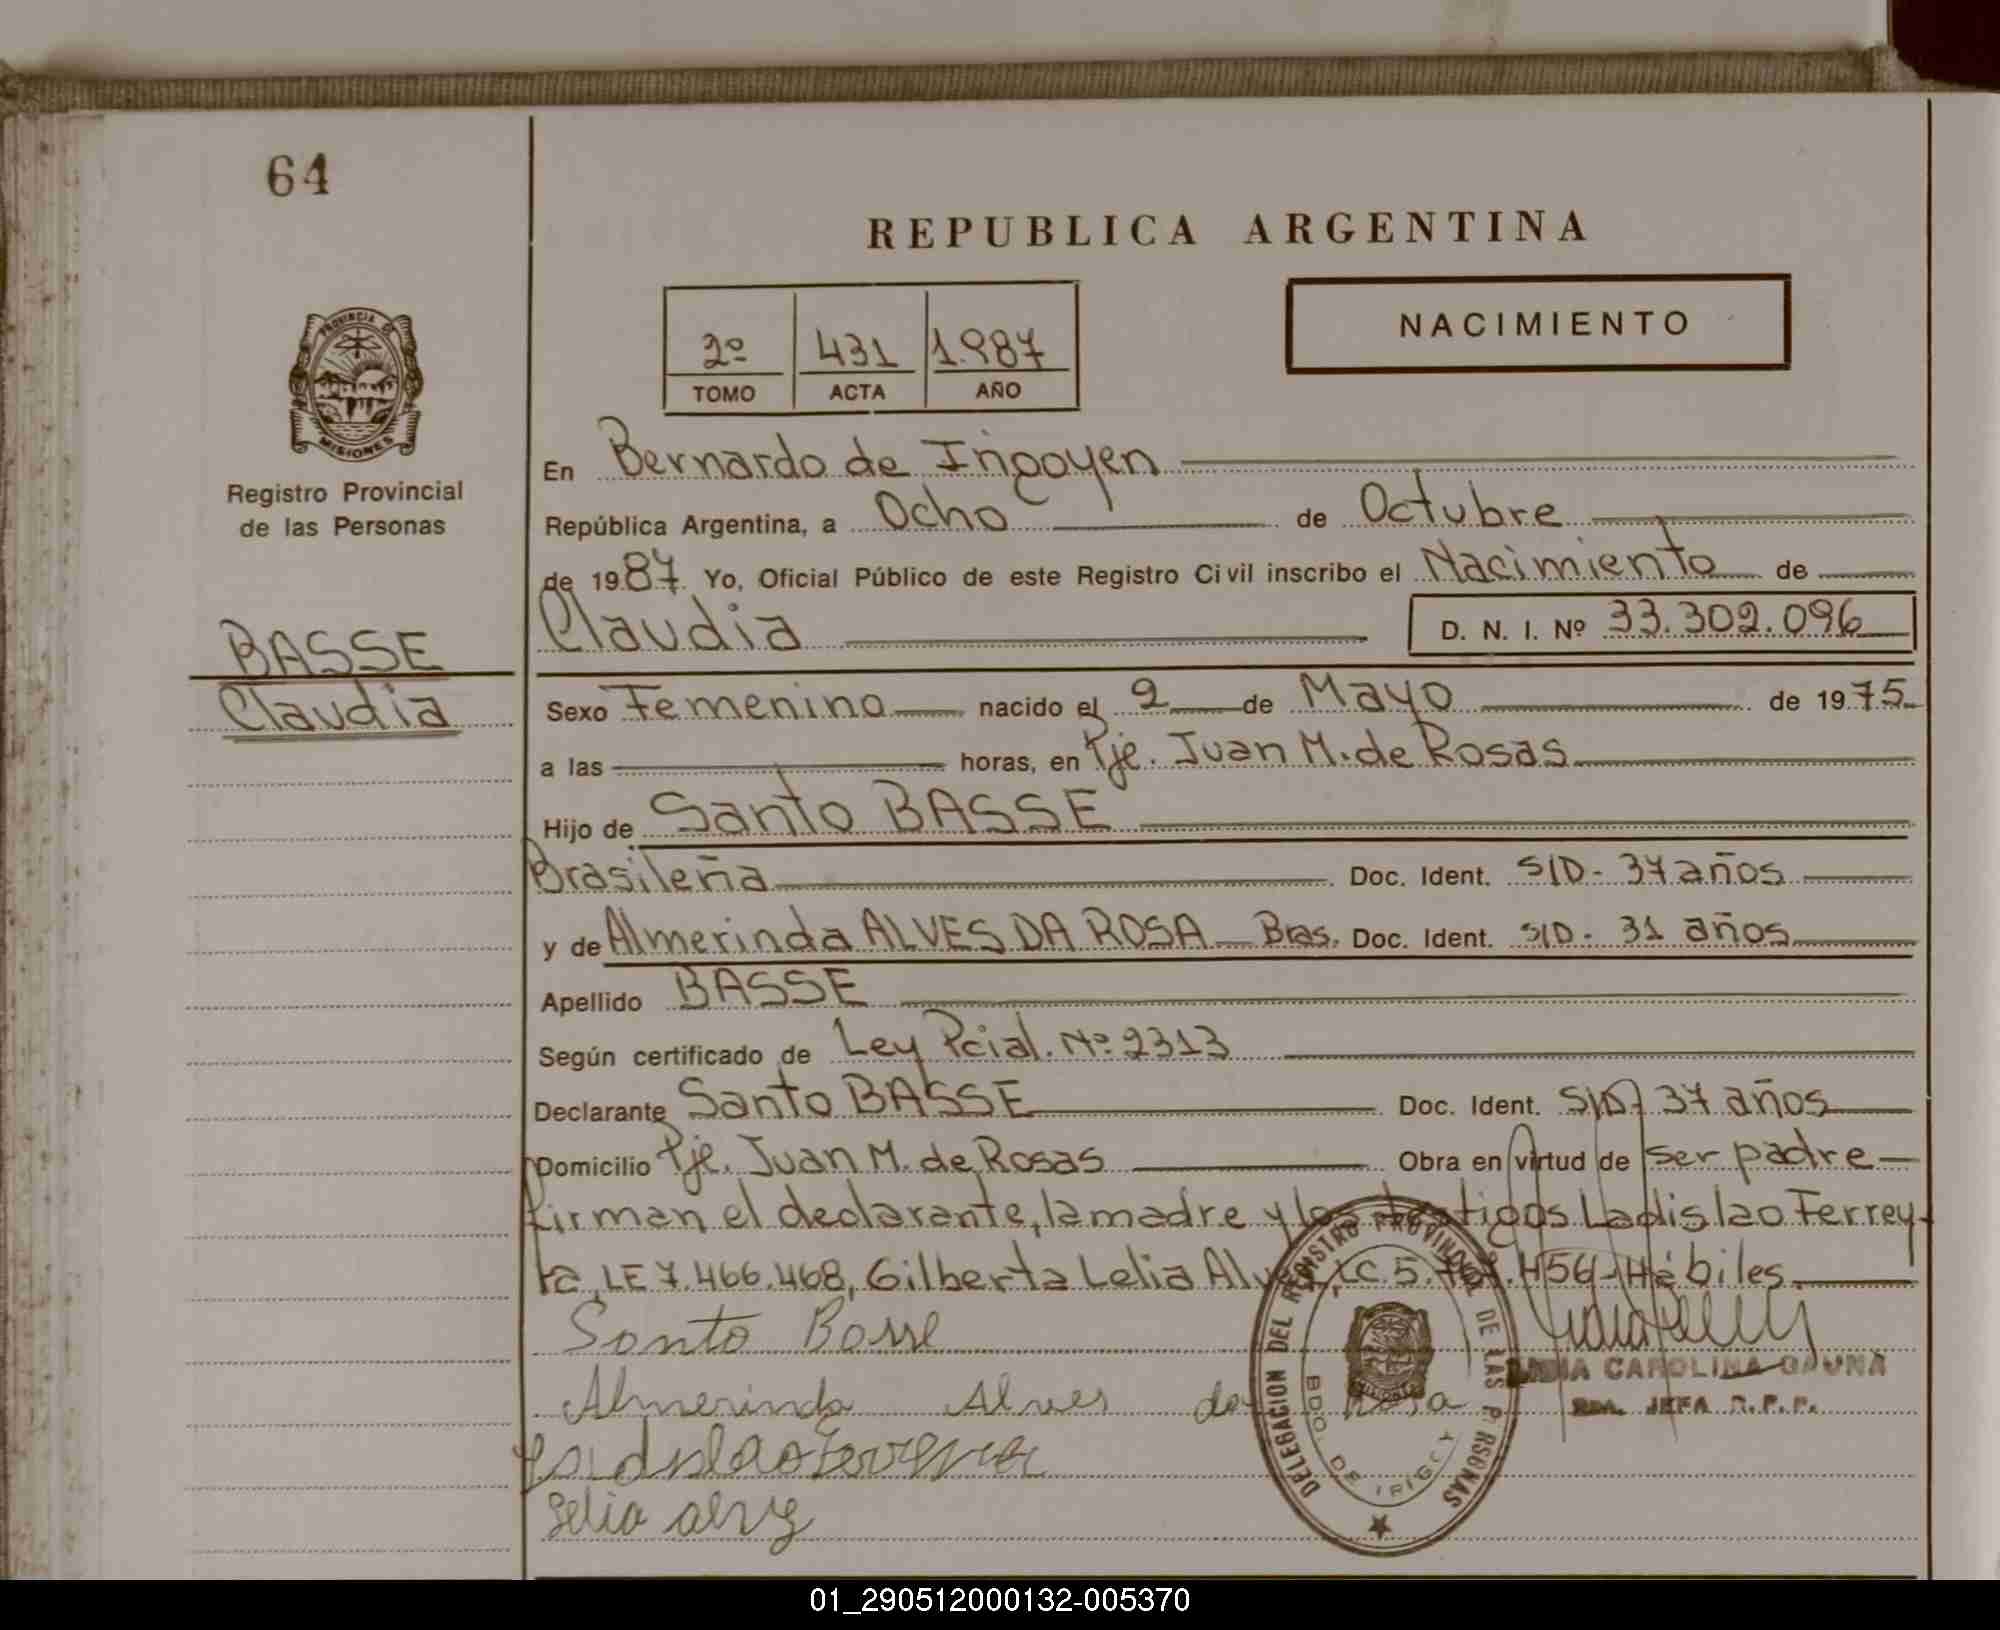 64
REPUBLICA ARGENTINA
PROVINCIA DE
MISIONES
2º 431 1.987
TOMO ACTA AÑO
NACIMIENTO
Registro Provincial
de las Personas
BASSE
Claudia
En Bernardo de Irigoyen
República Argentina, a Ocho de Octubre
de 1987. Yo, Oficial Público de este Registro Civil inscribo el Nacimiento de
Claudia D. N. I. Nº 33.302.096
Sexo Femenino nacido el 2 de Mayo de 1975
a las horas, en Pje. Juan M. de Rosas
Hijo de Santo BASSE
Brasileña Doc. Ident. S/D - 37 años
y de Almerinda ALVES DA ROSA Bras. Doc. Ident. S/D - 31 años
Apellido BASSE
Según certificado de Ley Pcial. Nº 2313
Declarante Santo BASSE Doc. Ident. S/D 37 años
Domicilio Pje. Juan M. de Rosas Obra en virtud de ser padre
firman el declarante, la madre y los testigos Ladislao Ferrey-
ra, LE 7.466.468, Gilberta Lelia LC 5. Hábiles
Santo Basse
Almerinda Alves da Rosa
Ladislao Ferreyra
CAROLINA GAUNA
JEFA R.P.P.
DELEGACION DEL REGISTRO PROVINCIAL DE LAS PERSONAS
BDO. DE IRIGOY
01_290512000132-005370